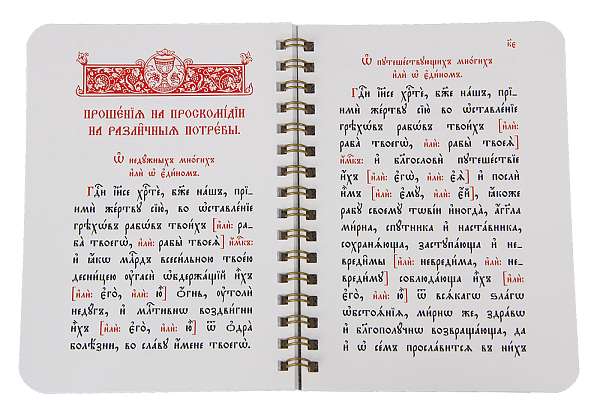 Прошє́нїѧ на проскомі́дїи
на разли́чныѧ потрє́бы.
Ѽ недꙋ́жныхъ мно́гихъ
и҆лѝ ѡ҆ є҆ди́номъ.
Гдⷭ҇и і҆и҃се хрⷭ҇тѐ, бж҃е на́шъ, прї-
имѝ же́ртвꙋ сїю̀, во ѡ҆ставле́нїе
грѣхѡ́въ рабѡ́въ твои́хъ [и҆лѝ: ра-
ба̀ твоегѡ̀, и҆лѝ: рабы̀ твоеѧ̀] и҆́мⷬ҇къ:
и҆ ꙗ҆́кѡ млⷭ҇рдъ всеси́льною твое́ю
десни́цею ѹ҆гасѝ ѡ҆держа́щїй и҆̀хъ
[и҆лѝ: є҆го̀, и҆лѝ: ю҆̀] ѻ҆́гнь, ѹ҆толѝ
недꙋ́гъ, и҆ млⷭ҇тивнѡ воздви́гни
и҆̀хъ [и҆лѝ: є҆го̀, и҆лѝ: ю҆̀] ѿ ѻ҆дра̀
болѣ́зни, во сла́вꙋ и҆́мене твоегѡ̀.
к҃є
Ѽ пꙋтеше́ствꙋющихъ мно́гихъ
и҆лѝ ѡ҆ є҆ди́номъ.
Гдⷭ҇и і҆и҃се хрⷭ҇тѐ, бж҃е на́шъ, прї-
имѝ же́ртвꙋ сїю̀ во ѡ҆ставле́нїе
грѣхѡ́въ рабѡ́въ твои́хъ [и҆лѝ:
раба̀ твоегѡ̀, и҆лѝ: рабы̀ твоеѧ̀]
и҆́мⷬ҇къ: и҆ благословѝ пꙋтеше́ствїе
и҆́хъ [и҆лѝ: є҆гѡ̀, и҆лѝ: є҆ѧ̀] и҆ послѝ
и҆̀мъ [и҆лѝ: є҆мꙋ̀, и҆лѝ: є҆́й], ꙗ҆́коже
рабꙋ̀ своемꙋ̀ тѡві́и и҆ногда̀, а҆́гг҃ла
ми́рна, спꙋ́тника и҆ наста́вника,
сохранѧ́юща, застꙋпа́юща и҆ не-
вреди́мы [и҆лѝ: невреди́ма, и҆лѝ: не-
вреди́мꙋ] соблюда́юща и҆̀хъ [и҆лѝ:
є҆го̀, и҆лѝ: ю҆̀] ѿ всѧ́кагѡ ѕла́гѡ
ѡ҆бстоѧ́нїѧ, ми́рнѡ же, здра́вѡ
и҆ благополꙋ́чнѡ возвраща́юща, да
и҆ ѡ҆ се́мъ просла́витсѧ въ ни́хъ